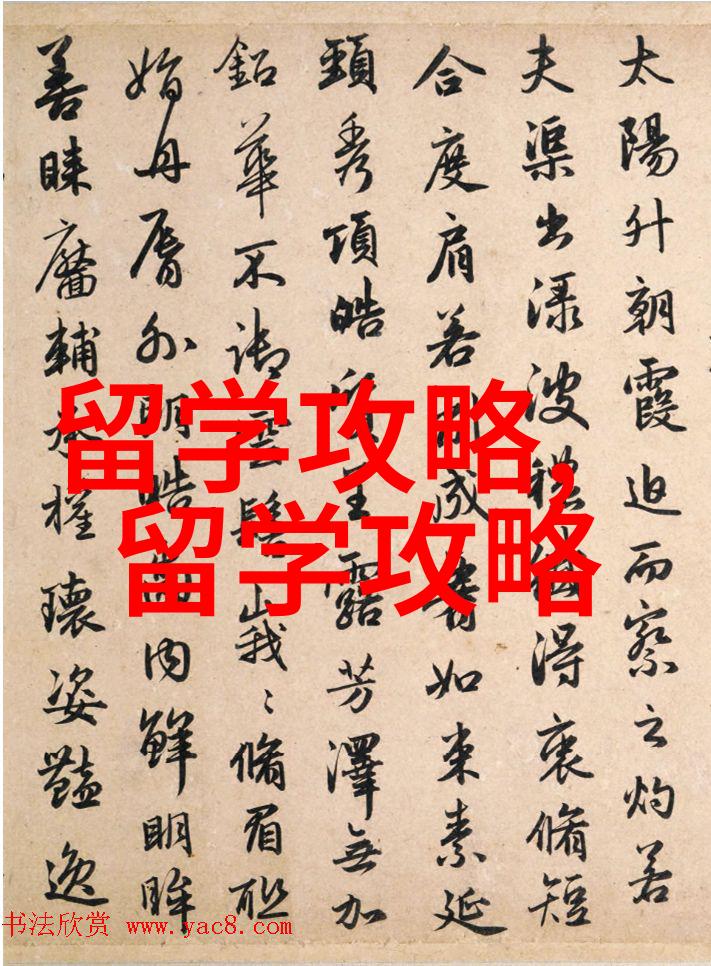 太陽升朝霞迫而察之灼若
夫渠出渌波穠纖得衷脩短
合度肩若削成腰如束素延
頸秀項皓質呈露芳澤無加
鉛華不御雲髻峩〻脩眉聯
娟丹脣外朗皓齒內鮮明眸
善睞靨輔承權瓌姿豔逸
留学攻略,
留学攻略
书法欣赏 www.yac8.com